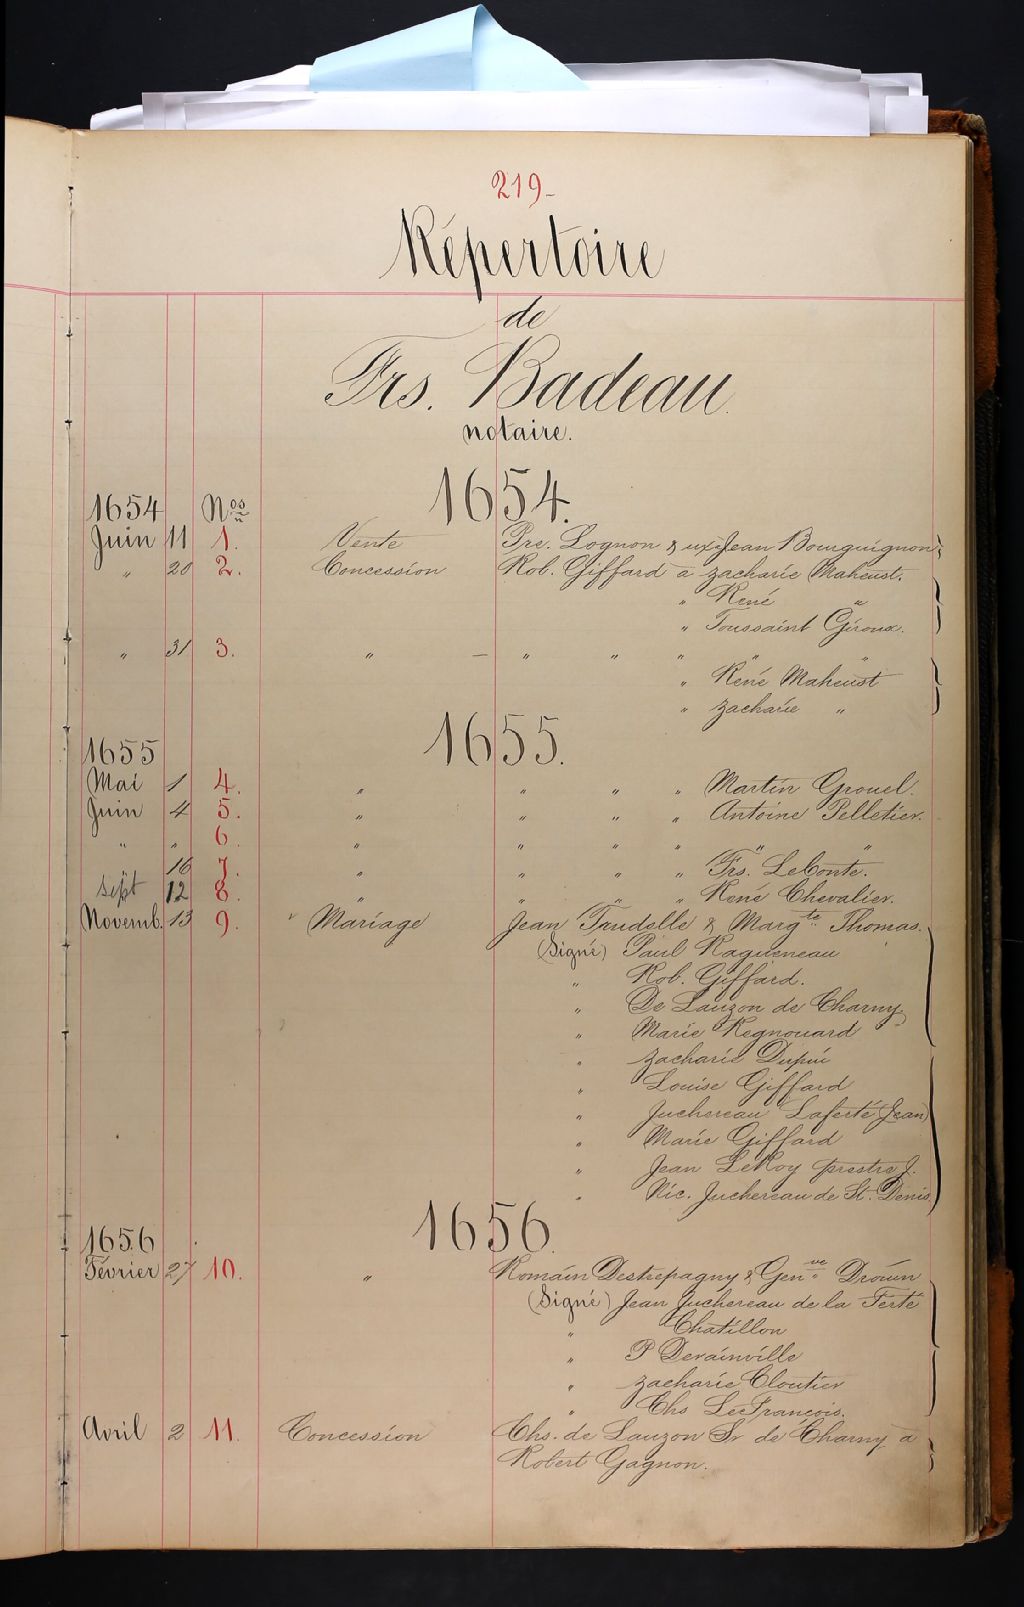 219-
Répertoire
de
Frs. Badeau
notaire.
1654.
1654 Nos
Juin 11 1. Vente Pre. Lognon & ux; Jean Bourguignon
" 20 2. Concession Rob. Giffard à Zacharie Maheust.
" René "
" Toussaint Giroux.
" 31 3. " — " " " " "
" René Maheust
" Zacharie "
1655.
1655
Mai 1 4. " " " " Martin Grouel.
Juin 4 5. " " " " Antoine Pelletier.
" " 6. " " " " " "
16 7. " " " " Frs. LeConte.
Sept 12 8. " " " " René Chevalier.
Novemb. 13 9. Mariage Jean Trudelle & Margte Thomas.
(Signé) Paul Ragueneau
" Rob. Giffard.
" De Lauzon de Charny
" Marie Regnouard
" Zacharie Dupui
" Louise Giffard
" Juchereau Laferté (Jean)
" Marie Giffard
" Jean LeRoy prestre J.
" Nic. Juchereau de St. Denis.
1656
1656
Février 27 10. " Romain Destrepagny & Genve Drouin
(Signé) Jean Juchereau de la Ferté
" Chatillon
" P Derainville
" Zacharie Cloutier
" Chs LeFrançois.
Avril 2 11. Concession Chs. de Lauzon Sr de Charny à
Robert Gagnon.